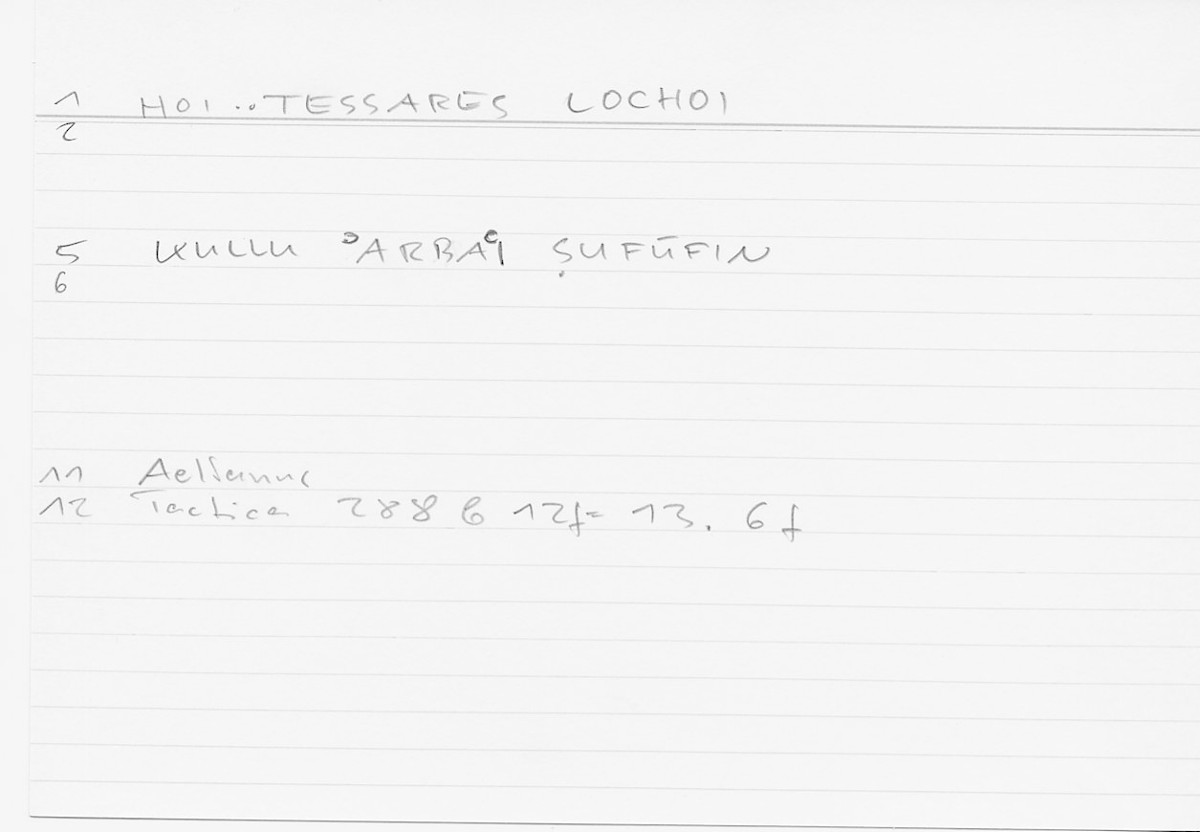 1 HOI .. TESSARES LOCHOI
2
5 KULLU ʾARBAʿI ṢUFŪFIN
6
11 Aelianus
12 Tactica 288 b 12f = 13. 6 f